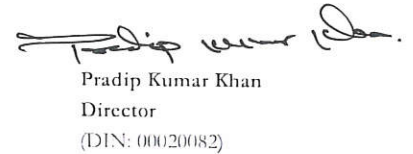 Pradip Kumar Khan.
Pradip Kumar Khan
Director
(DIN: 00020082)